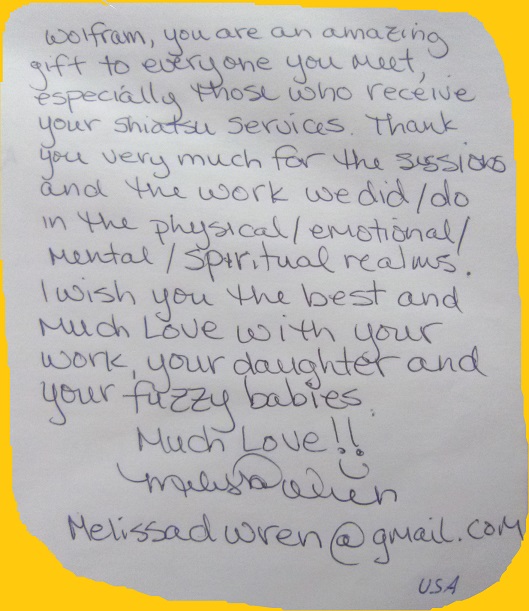 Wolfram, you are an amazing
gift to everyone you meet,
especially those who receive
your shiatsu services. Thank
you very much for the sessions
and the work we did/do
in the physical/emotional/
mental/spiritual realms.
I wish you the best and
much Love with your
work, your daughter and
your fuzzy babies.
Much Love!!
Melissa Wren
Melissadwren@gmail.com
USA